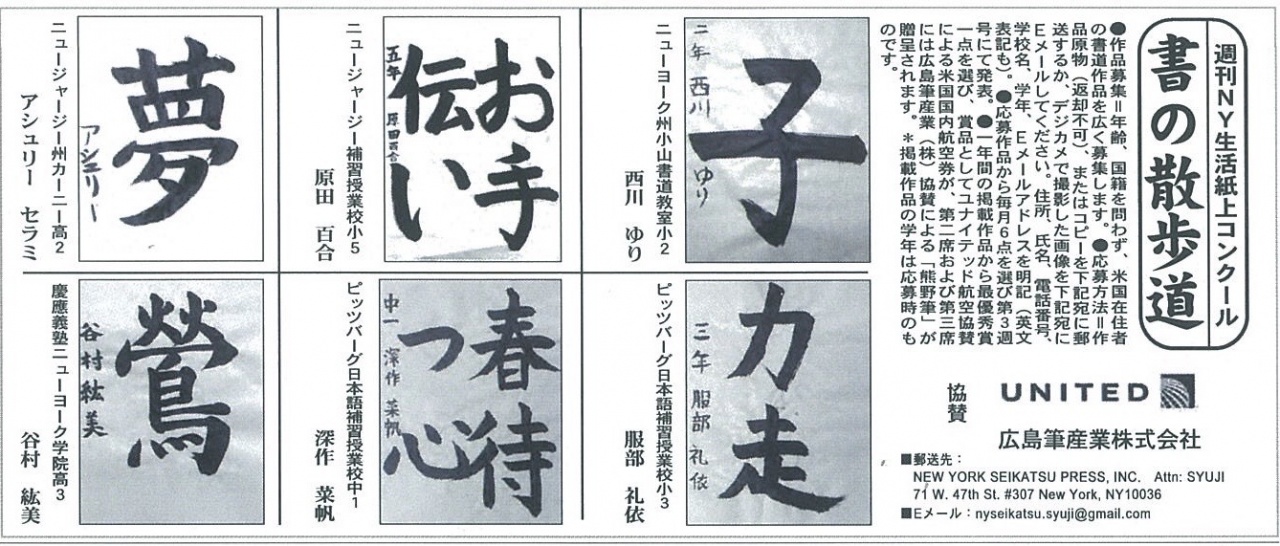 週刊NY生活紙上コンクール
書の散歩道
●作品募集＝年齢、国籍を問わず、米国在住者
の書道作品を広く募集します。●応募方法＝作
品原物（返却不可）、またはコピーを下記宛に郵
送するか、デジカメで撮影した画像を下記宛に
Eメールしてください。住所、氏名、電話番号、
学校名、学年、Eメールアドレスを明記（英文
表記も）。●応募作品から毎月6点を選び第3週
号にて発表。●一年間の掲載作品から最優秀賞
一点を選び、賞品としてユナイテッド航空協賛
による米国国内航空券が、第二席および第三席
には広島筆産業（株）協賛による「熊野筆」が
贈呈されます。＊掲載作品の学年は応募時のも
のです。
協賛
UNITED
広島筆産業株式会社
■郵送先：
NEW YORK SEIKATSU PRESS, INC. Attn: SYUJI
71 W. 47th St. #307 New York, NY10036
■Eメール：nyseikatsu.syuji@gmail.com
子
二年 西川 ゆり
ニューヨーク州小山書道教室小2
西川 ゆり
お手
伝い
五年 原田百合
ニュージャージー補習授業校小5
原田 百合
夢
アシュリー
ニュージャージー州カーニー高2
アシュリー セラミ
力走
三年 服部 礼依
ピッツバーグ日本語補習授業校小3
服部 礼依
春待
つ心
中一 深作 菜帆
ピッツバーグ日本語補習授業校中1
深作 菜帆
鶯
谷村 紘美
慶應義塾ニューヨーク学院高3
谷村 紘美